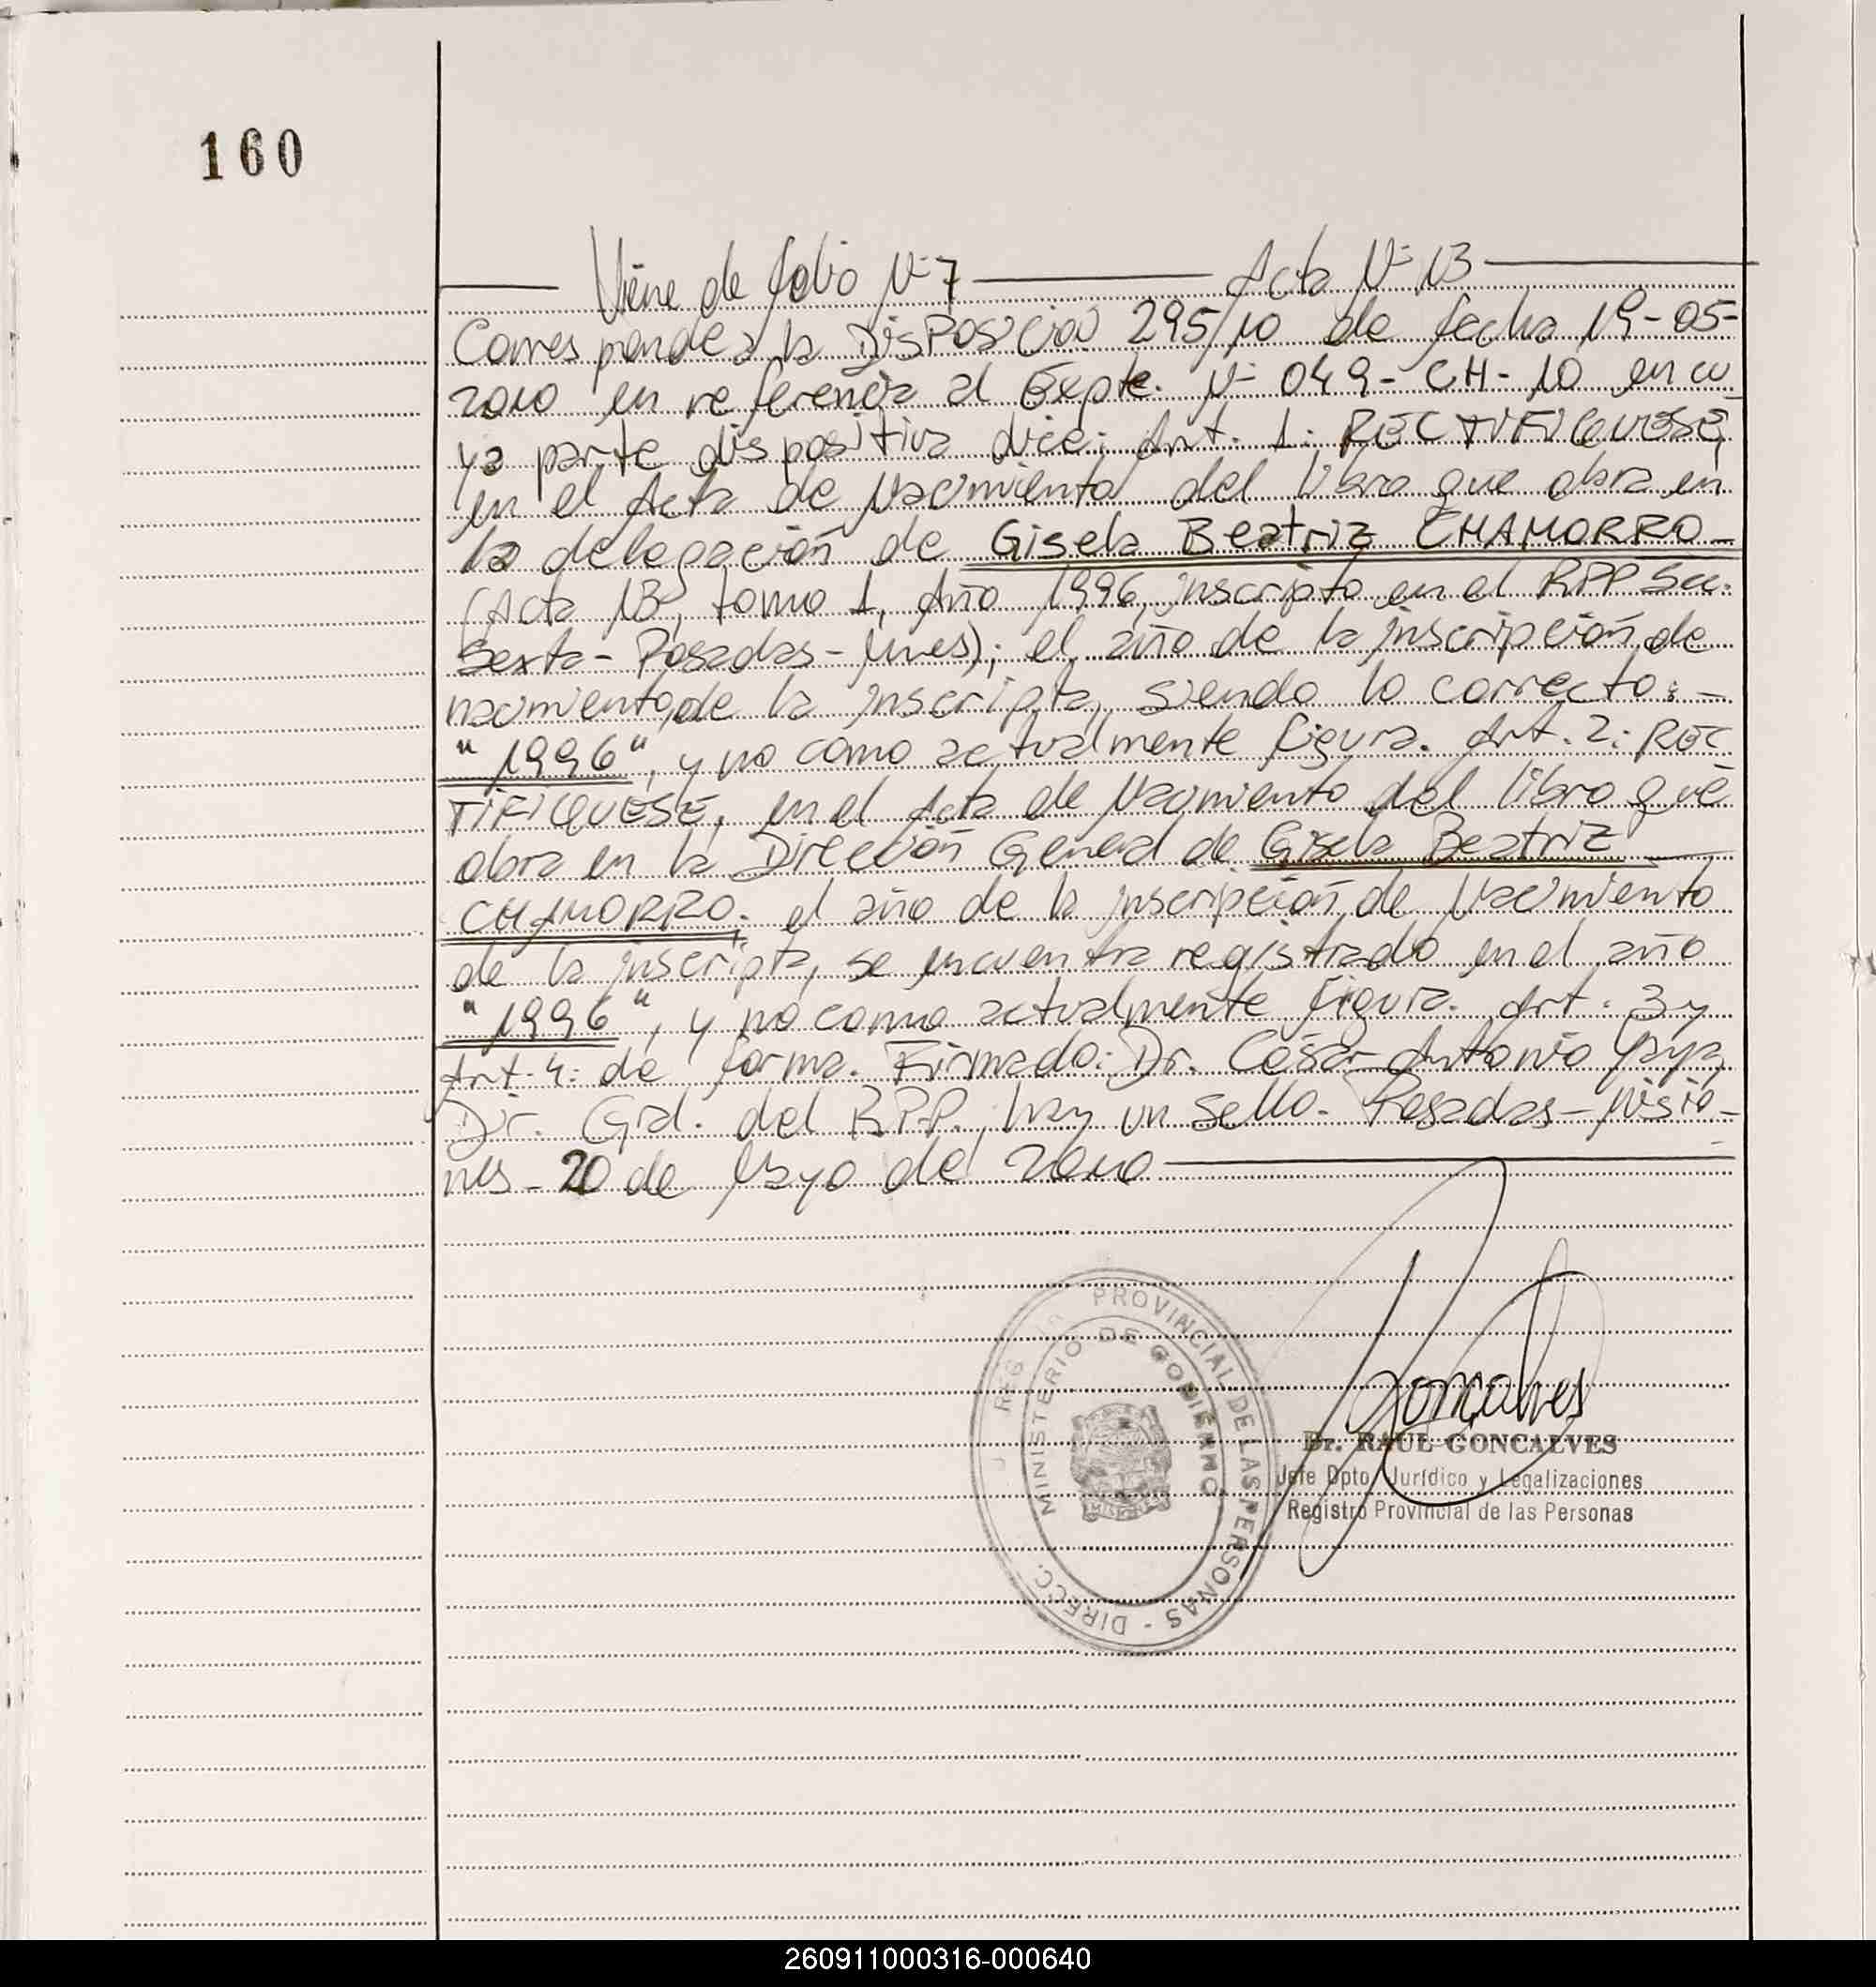 160
Viene de folio Nº 7 Acta Nº 13
Corresponde a la DISPOSICION 295/10 de fecha 19-05-
2010 en referencia al Expte. Nº 049-CH-10 en cu
ya parte dispositiva dice: Art. 1: RECTIFIQUESE,
en el Acta de Nacimiento del libro que obra en
la delegación de Gisela Beatriz CHAMORRO-
(Acta 13, tomo 1, Año 1996, inscripto en el RPP Sec.
Sexta-Posadas-Mnes); el año de la inscripción de
nacimiento, de la inscripta, siendo lo correcto: -
"1996", y no como actualmente figura. Art. 2: REC
TIFIQUESE, en el Acta de Nacimiento del libro que
obra en la Dirección General de Gisela Beatriz
CHAMORRO; el año de la inscripción, de Nacimiento
de la inscripta, se encuentra registrado en el año
"1996", y no como actualmente figura. Art. 3 y
Art. 4: de forma. Firmado: Dr. César Antonio Yaya,
Dir. Gral. del RPP., hay un sello. Posadas-Misio-
nes-20 de Mayo de 2010
PROVINCIAL DE LAS PERSONAS - DIRECC.
MINISTERIO DE GOBIERNO
Goncalves
Dr. RAUL GONCALVES
Jefe Dpto. Jurídico y Legalizaciones
Registro Provincial de las Personas
260911000316-000640